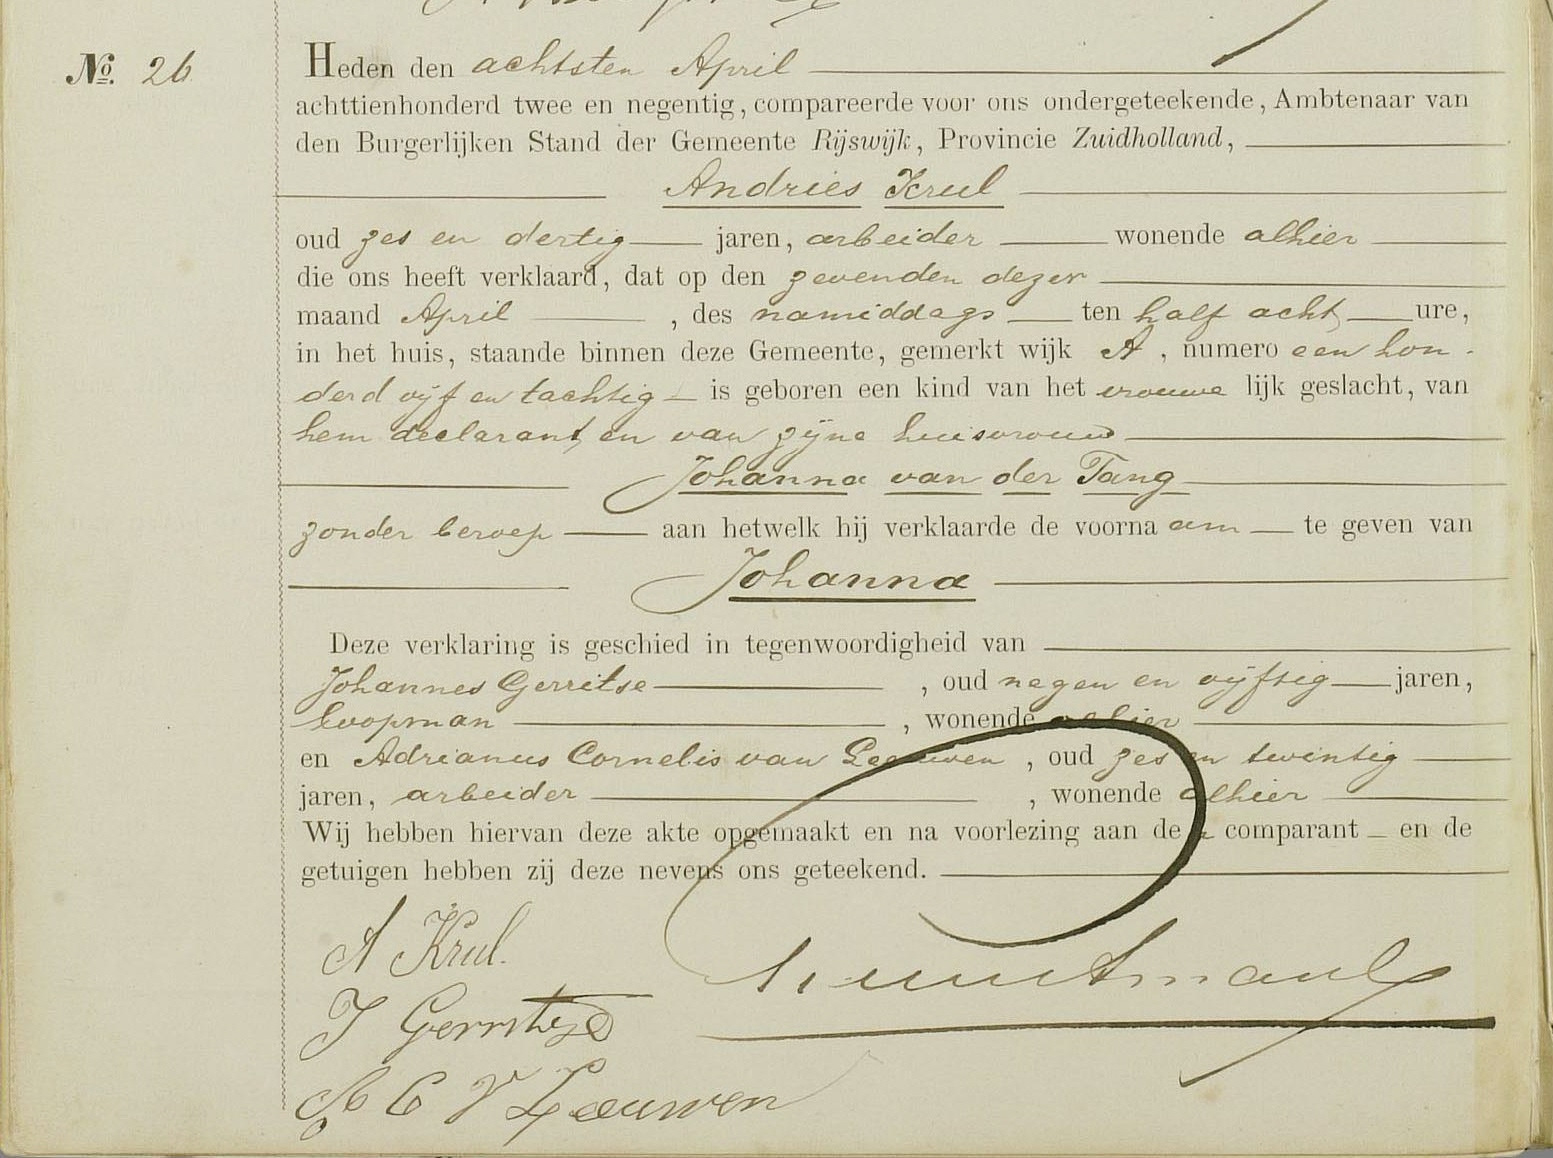 No. 26
Heden den achtsten April
achttienhonderd twee en negentig, compareerde voor ons ondergeteekende, Ambtenaar van
den Burgerlijken Stand der Gemeente Rijswijk, Provincie Zuidholland,
Andries Krul
oud zes en dertig jaren, arbeider wonende alhier
die ons heeft verklaard, dat op den zevenden dezer
maand April, des namiddags ten half acht ure,
in het huis, staande binnen deze Gemeente, gemerkt wijk A, numero een hon-
derd vijf en tachtig is geboren een kind van het vrouwe lijk geslacht, van
hem declarant, en van zijne huisvrouw
Johanna van der Tang
zonder beroep aan hetwelk hij verklaarde de voorna am te geven van
Johanna
Deze verklaring is geschied in tegenwoordigheid van
Johannes Gerritse, oud negen en vijftig jaren,
koopman, wonende alhier
en Adrianus Cornelis van Leeuwen, oud zes en twintig
jaren, arbeider, wonende alhier
Wij hebben hiervan deze akte opgemaakt en na voorlezing aan de n comparant en de
getuigen hebben zij deze nevens ons geteekend.
A Krul.
J Gerritse
A C V Leeuwen